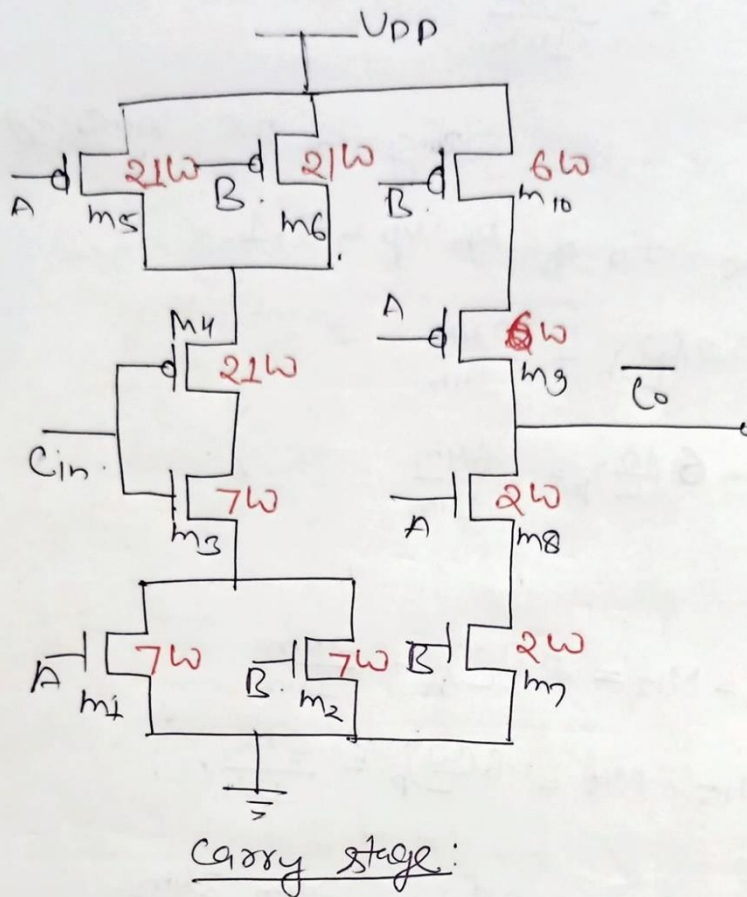 VDD
A
21W
m5
B.
21W
m6
B.
6W
m10
M4
21W
A
6W
m9
Co
Cin.
7W
m3
A
2W
m8
A
7W
m1
B.
7W
m2
B
2W
m7
Carry stage: